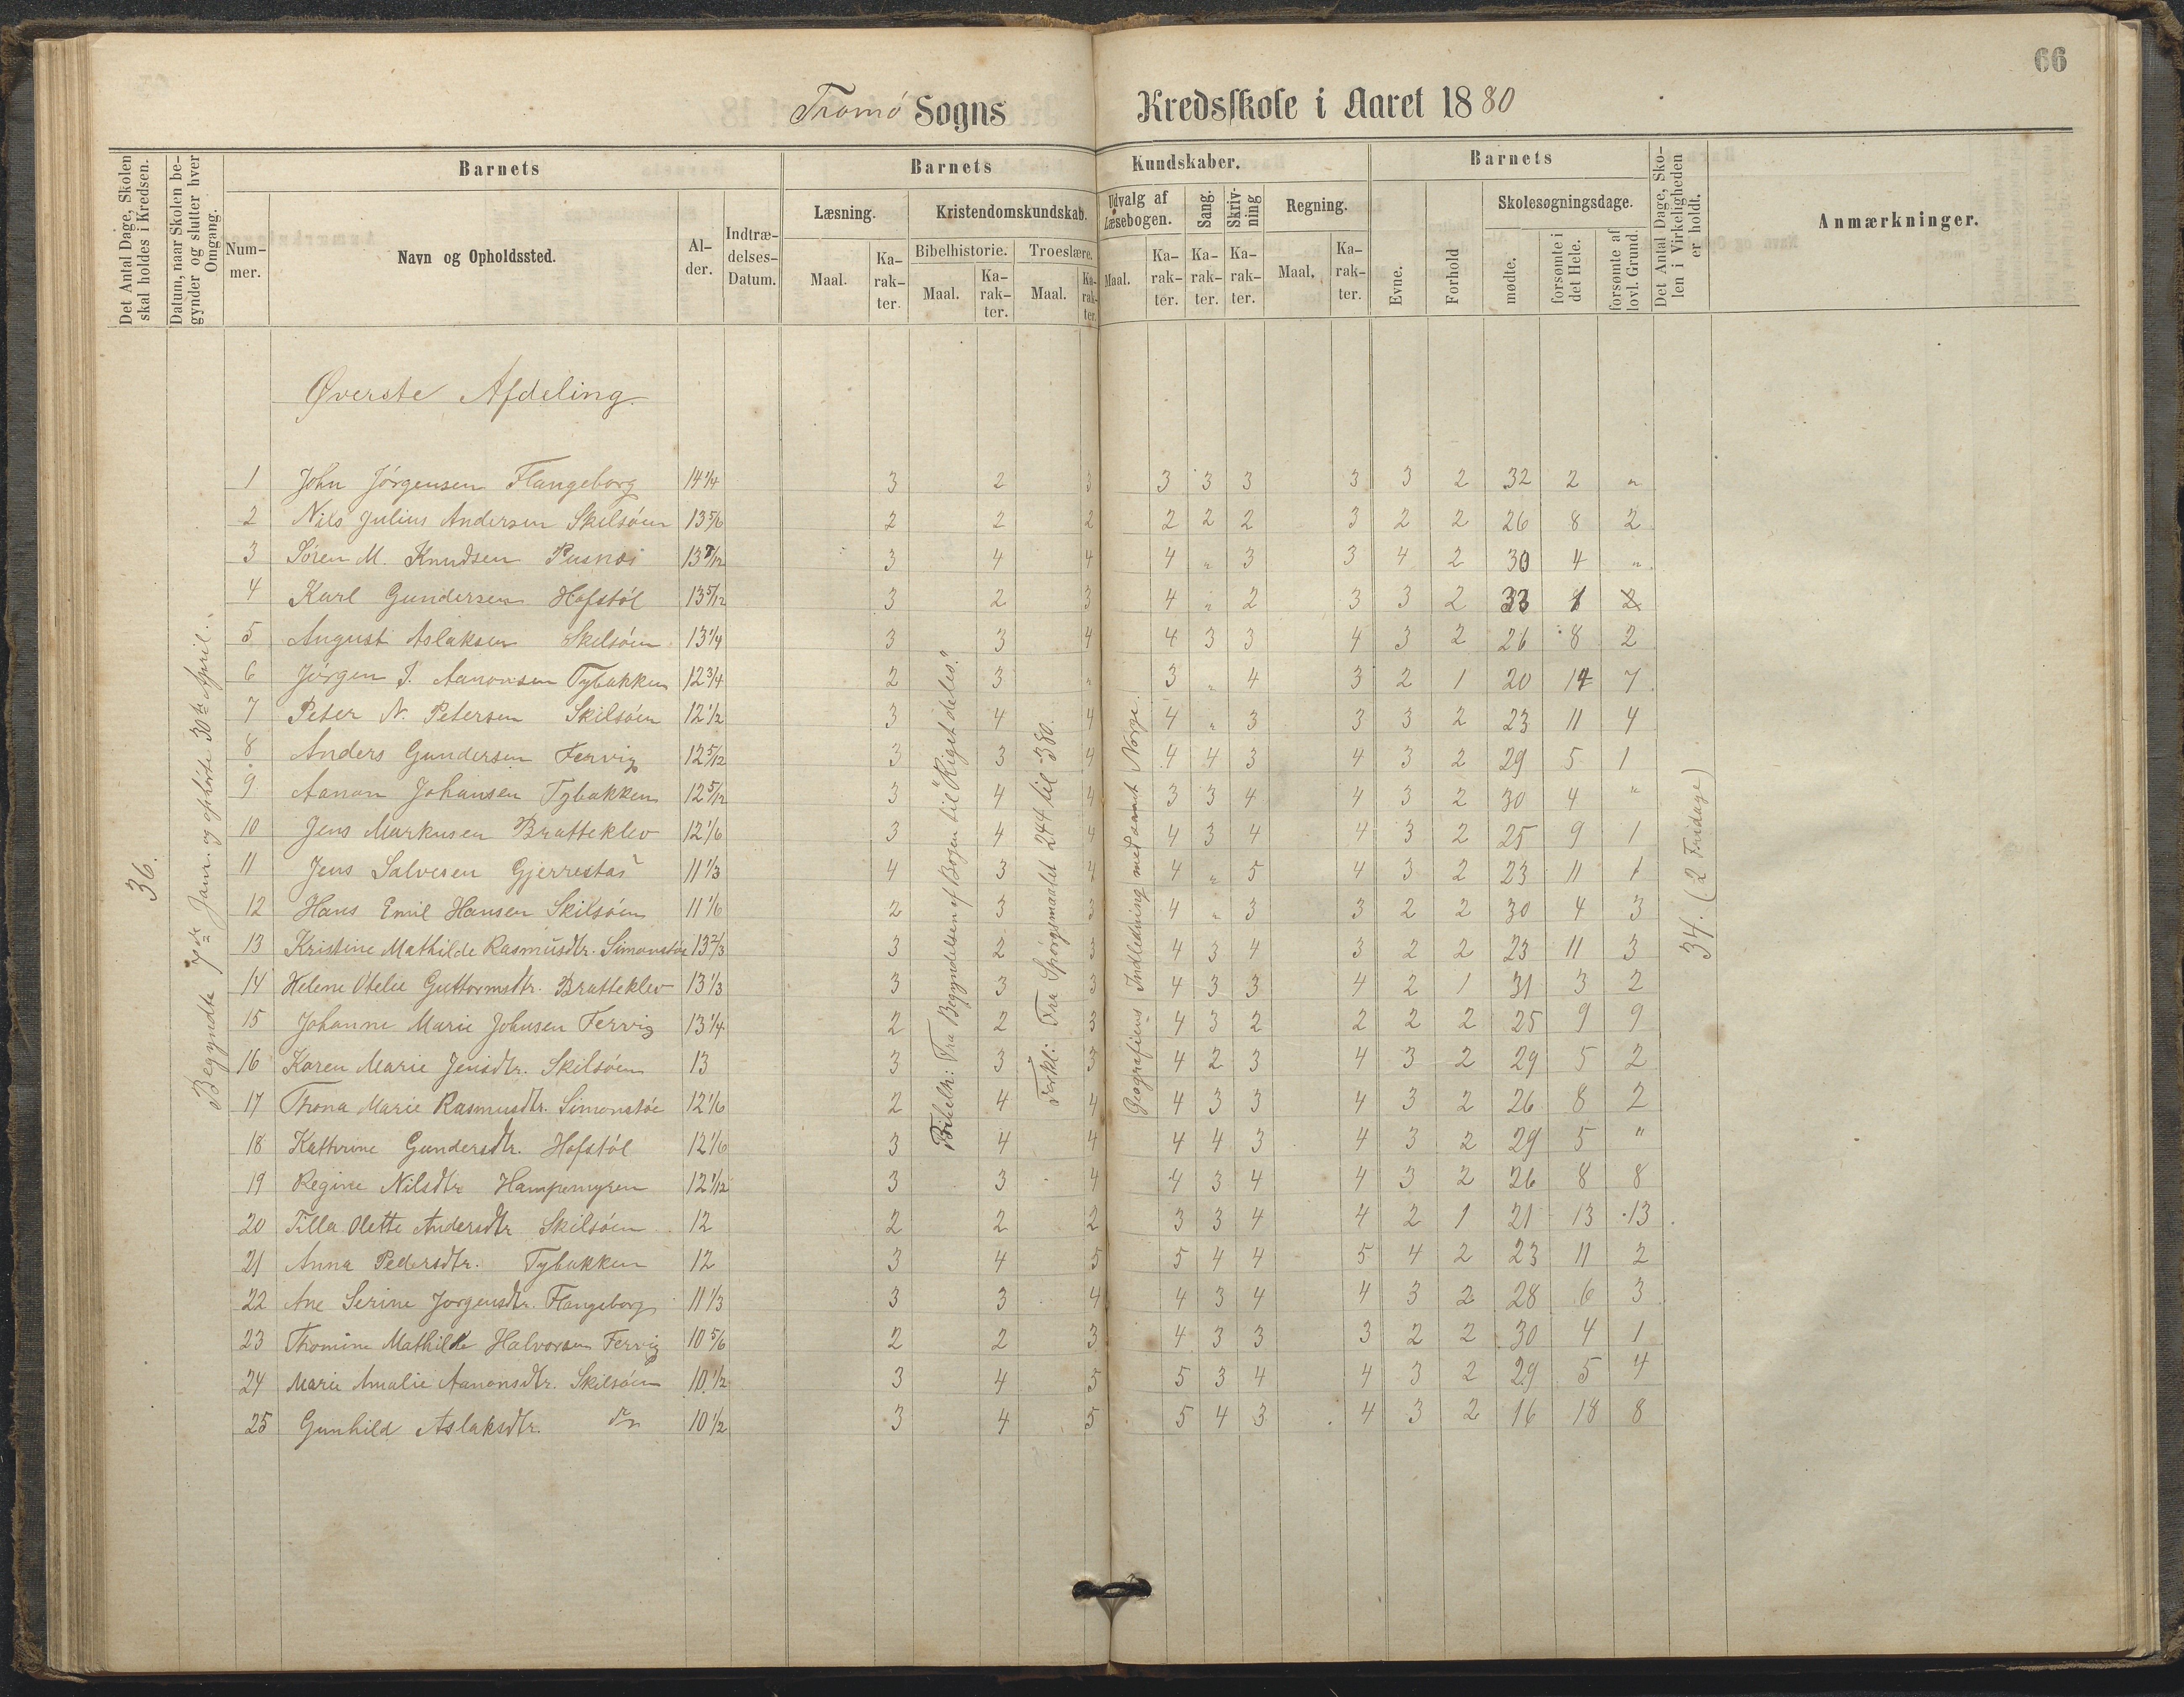 66
Tromø Sogns Kredsskole i Aaret 1880
Det Antal Dage, Skolen skal holdes i Kredsen.
Datum, naar Skolen begynder og slutter hver Omgang.
Barnets
Nummer.
Navn og Opholdssted.
Alder.
Indtrædelses-Datum.
Barnets Kundskaber.
Læsning.
Maal.
Karakter.
Kristendomskundskab.
Bibelhistorie.
Maal.
Karakter.
Troeslære.
Maal.
Karakter.
Udvalg af Læsebogen.
Maal.
Karakter.
Sang.
Karakter.
Skrivning
Karakter.
Regning.
Maal.
Karakter.
Barnets
Evne.
Forhold
Skolesøgningsdage.
mødte.
forsømte i det Hele.
forsømte af lovl. Grund.
Det Antal Dage, Skolen i Virkeligheden er holdt.
Anmærkninger.
36.
Begyndte 7de Jan. og ophørte 30te April.
Øverste Afdeling.
1 John Jörgensen Flangeborg 14 1/4 3 2 3 3 3 3 3 3 2 32 2 "
2 Nils Julius Andersen Skilsöen 13 5/6 2 2 2 2 2 2 3 2 2 26 8 2
3 Sören M. Knudsen Pusnes 13 7/12 3 4 4 4 " 3 3 4 2 30 4 "
4 Karl Gundersen Hofstöl 13 5/12 3 2 3 4 " 2 3 3 2 33 1 2
5 August Aslaksen Skilsöen 13 1/4 3 3 4 4 3 3 4 3 2 26 8 2
6 Jörgen T. Aanonsen Tybakken 12 3/4 2 3 " 3 " 4 3 2 1 20 14 7
7 Peter N. Petersen Skilsöen 12 1/2 3 4 4 4 " 3 3 3 2 23 11 4
8 Anders Gundersen Fervig 12 5/12 3 3 4 4 4 3 4 3 2 29 5 1
9 Aanon Johansen Tybakken 12 5/12 3 4 4 3 3 4 4 3 2 30 4 "
10 Jens Markusen Bratteklev 12 1/6 3 4 4 4 3 4 4 3 2 25 9 1
11 Jens Salvesen Gjerrestad 11 1/3 4 3 4 4 " 5 4 3 2 23 11 1
12 Hans Emil Hansen Skilsöen 11 1/6 2 3 3 4 " 3 3 2 2 30 4 3
13 Kristine Mathilde Rasmusdtr. Simonstöe 13 2/3 3 2 3 4 3 4 3 2 2 23 11 3
14 Helene Otelie Guttormsdtr. Bratteklev 13 1/3 3 3 3 4 3 3 4 2 1 31 3 2
15 Johanne Marie Johnsen Fervig 13 1/4 2 2 3 4 3 2 2 2 2 25 9 9
16 Karen Marie Jensdtr. Skilsöen 13 3 3 3 4 2 3 4 3 2 29 5 2
17 Thona Marie Rasmusdtr. Simonstöe 12 1/6 2 4 4 4 3 3 4 3 2 26 8 2
18 Kathrine Gundersdtr. Hofstöl 12 1/6 3 4 4 4 4 3 4 3 2 29 5 "
19 Regine Nilsdtr Hampemyren 12 1/12 3 3 4 4 3 4 4 3 2 26 8 8
20 Tilla Olette Andersdtr Skilsöen 12 2 2 2 3 3 4 4 2 1 21 13 13
21 Anna Pedersdtr. Tybakken 12 3 4 5 5 4 4 5 4 2 23 11 2
22 Ane Serine Jorgensdtr. Flangeborg 11 1/3 3 3 4 4 3 4 4 3 2 28 6 3
23 Thomine Mathilde Halvorsen Fervig 10 5/6 2 2 3 4 3 3 3 2 2 30 4 1
24 Marie Amalie Aanonsdtr. Skilsöen 10 1/2 3 4 5 5 3 4 4 3 2 29 5 4
25 Gunhild Aslaksdtr. do 10 1/2 3 4 5 5 4 3 4 3 2 16 18 8
Bibelh: Fra Begyndelsen af Bogen til "Riget deles."
Forkl: Fra Spörgsmaalet 244 til 380.
Geografiens Indledning med samt Norge.
34. (2 Fridage)